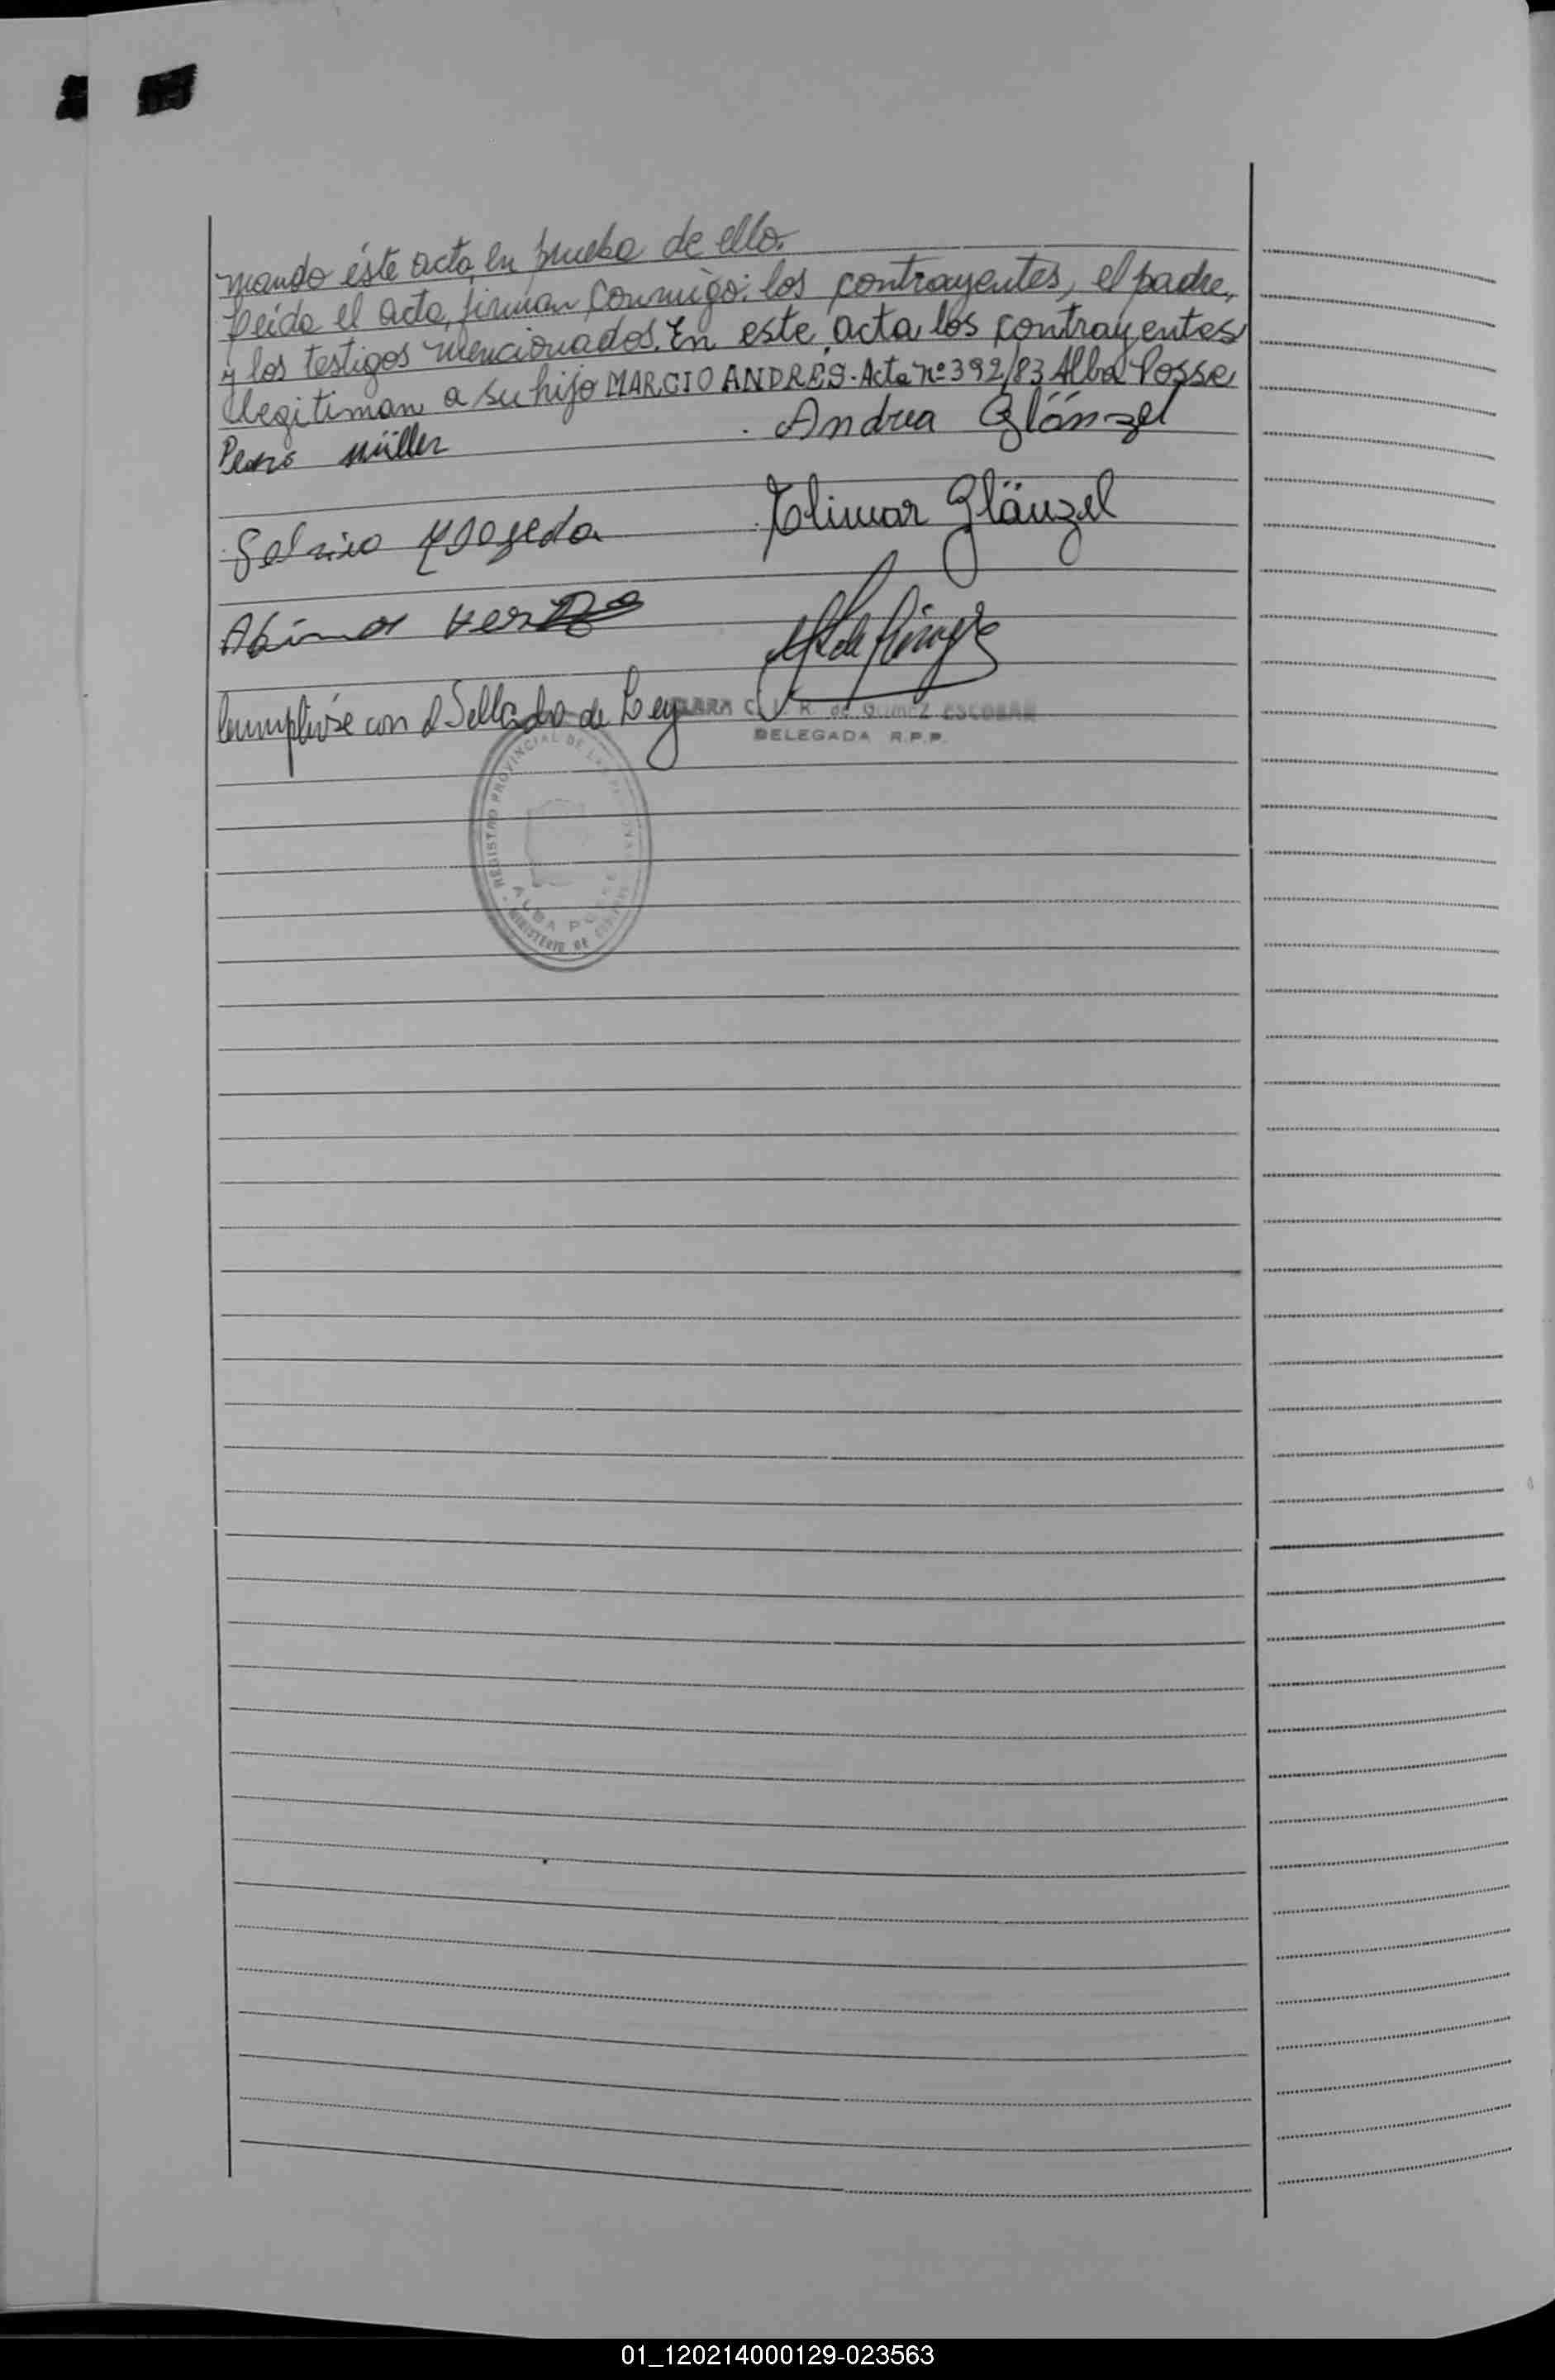 mando éste acta, en prueba de ello.
Leída el acta, firman conmigo: los contrayentes, el padre,
y los testigos mencionados. En este acta los contrayentes
legitiman a su hijo MARCIO ANDRÉS. Acta nº 392/83 Alba Posse
Pedro Müller
Andrea Glänzel
Elimar Glänzel
Cumplióse con el Sellado de Ley
DE GOMEZ ESCOBAR
DELEGADA R.P.P.
REGISTRO PROVINCIAL DE LAS
ALBA POSSE
MINISTERIO DE
01_120214000129-023563